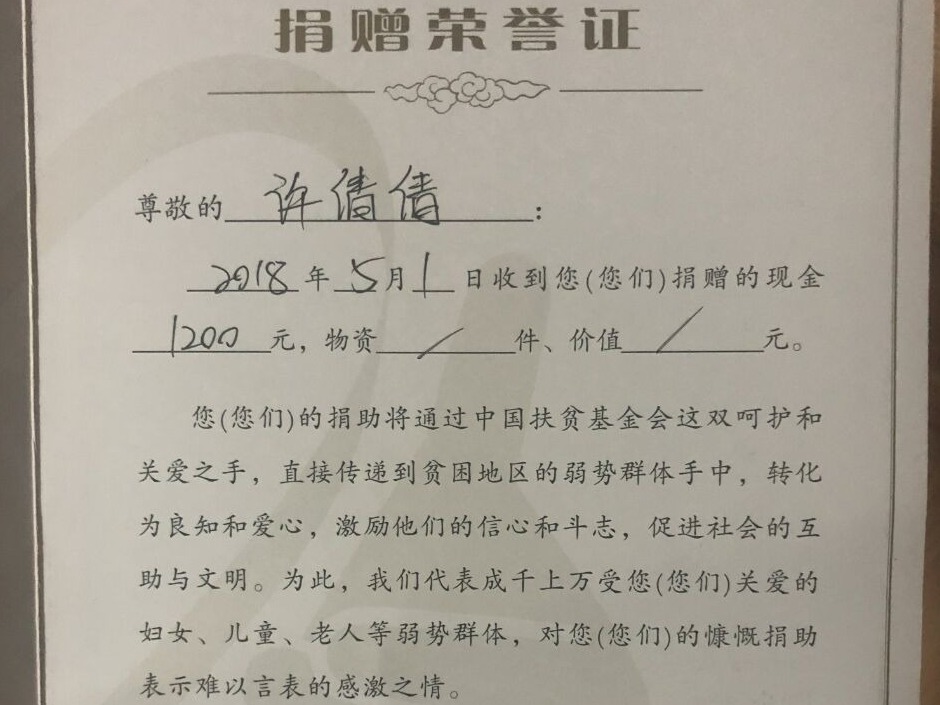 捐赠荣誉证
尊敬的 许倩倩 :
2018 年 5 月 1 日收到您(您们)捐赠的现金
1200 元，物资 / 件、价值 / 元。
您(您们)的捐助将通过中国扶贫基金会这双呵护和
关爱之手，直接传递到贫困地区的弱势群体手中，转化
为良知和爱心，激励他们的信心和斗志，促进社会的互
助与文明。为此，我们代表成千上万受您(您们)关爱的
妇女、儿童、老人等弱势群体，对您(您们)的慷慨捐助
表示难以言表的感激之情。